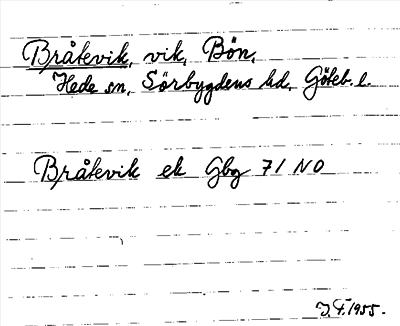 Bråtevik, vik, Bön,
Hede sn, Sörbygdens hd, Göteb. l.
Bråtevik ek Gbg 71 NO
J.F. 1955.